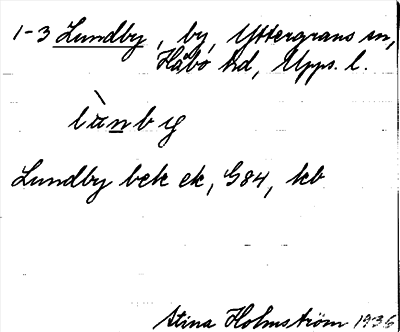 1-3 Lundby, by, Yttergrans sn,
Håbo hd, Upps. l.
lùnby
Lundby bek ek, G84, kb
Stina Holmström 1936